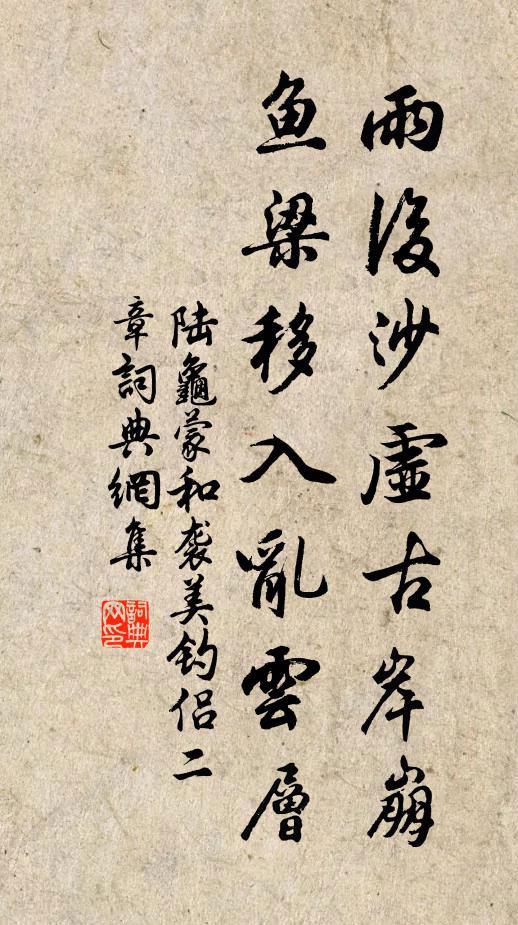 雨後沙虛古岸崩
魚梁移入亂雲層
陸龜蒙和袭美钓侣二
章詞典網集
詞典
网印